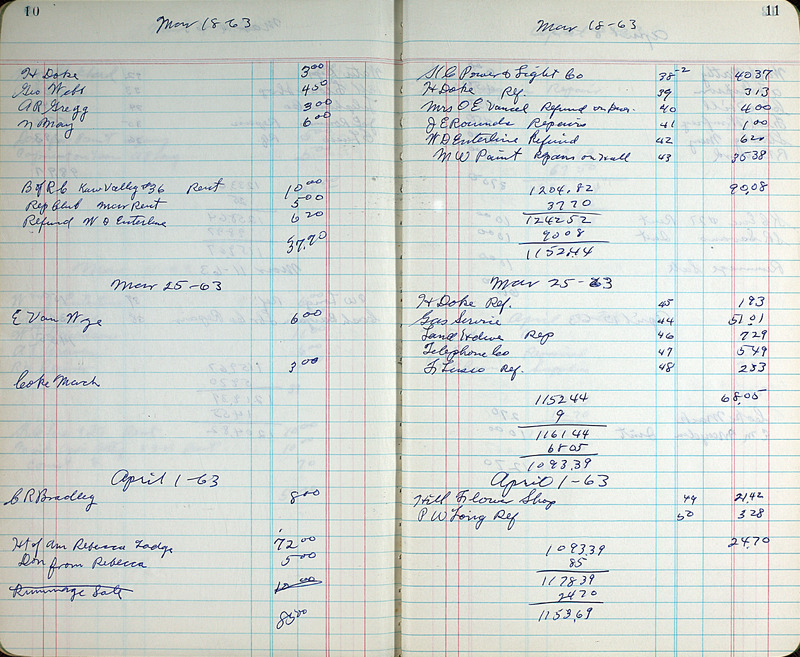 10
Mar 18-63
H Doke 3 00
Geo Webb 4 50
A R Gregg 3 00
N May 6 00
B of R C Kaw Valley #36 Rent 10 00
Rep Club Mar Rent 5 00
Refund W D Enterline 6 20
37.70
Mar 25-63
E Van Wye 6 00
3 00
Coke Mach
April 1-63
C R Bradley 8 00
Hf of am Rebecca Lodge 72 00
Don from Rebecca 5 00
Rummage Sale 10 00
85 00
11
Mar 18-63
K C Power & Light Co 38 -2 40 37
H Doke Ref. 39 3 13
Mrs O E Refund on 40 4 00
J E Rounds Repairs 41 1 00
W D Enterline Refund 42 6 20
M W Paint Repairs on Hall 43 35 38
90,08
1204,82
37 70
1242 52
90 08
1152 44
Mar 25-63
H Doke Ref. 45 1 93
Gas Service 44 51 01
Rep 46 7 29
Telephone Co 47 5 49
Ref. 48 2 33
68,05
1152 44
9
1161 44
68 05
1093,39
April 1-63
Hill Flower Shop 49 21 42
P W Long Ref 50 3 28
24.70
1093.39
85
1178 39
24 70
1153,69